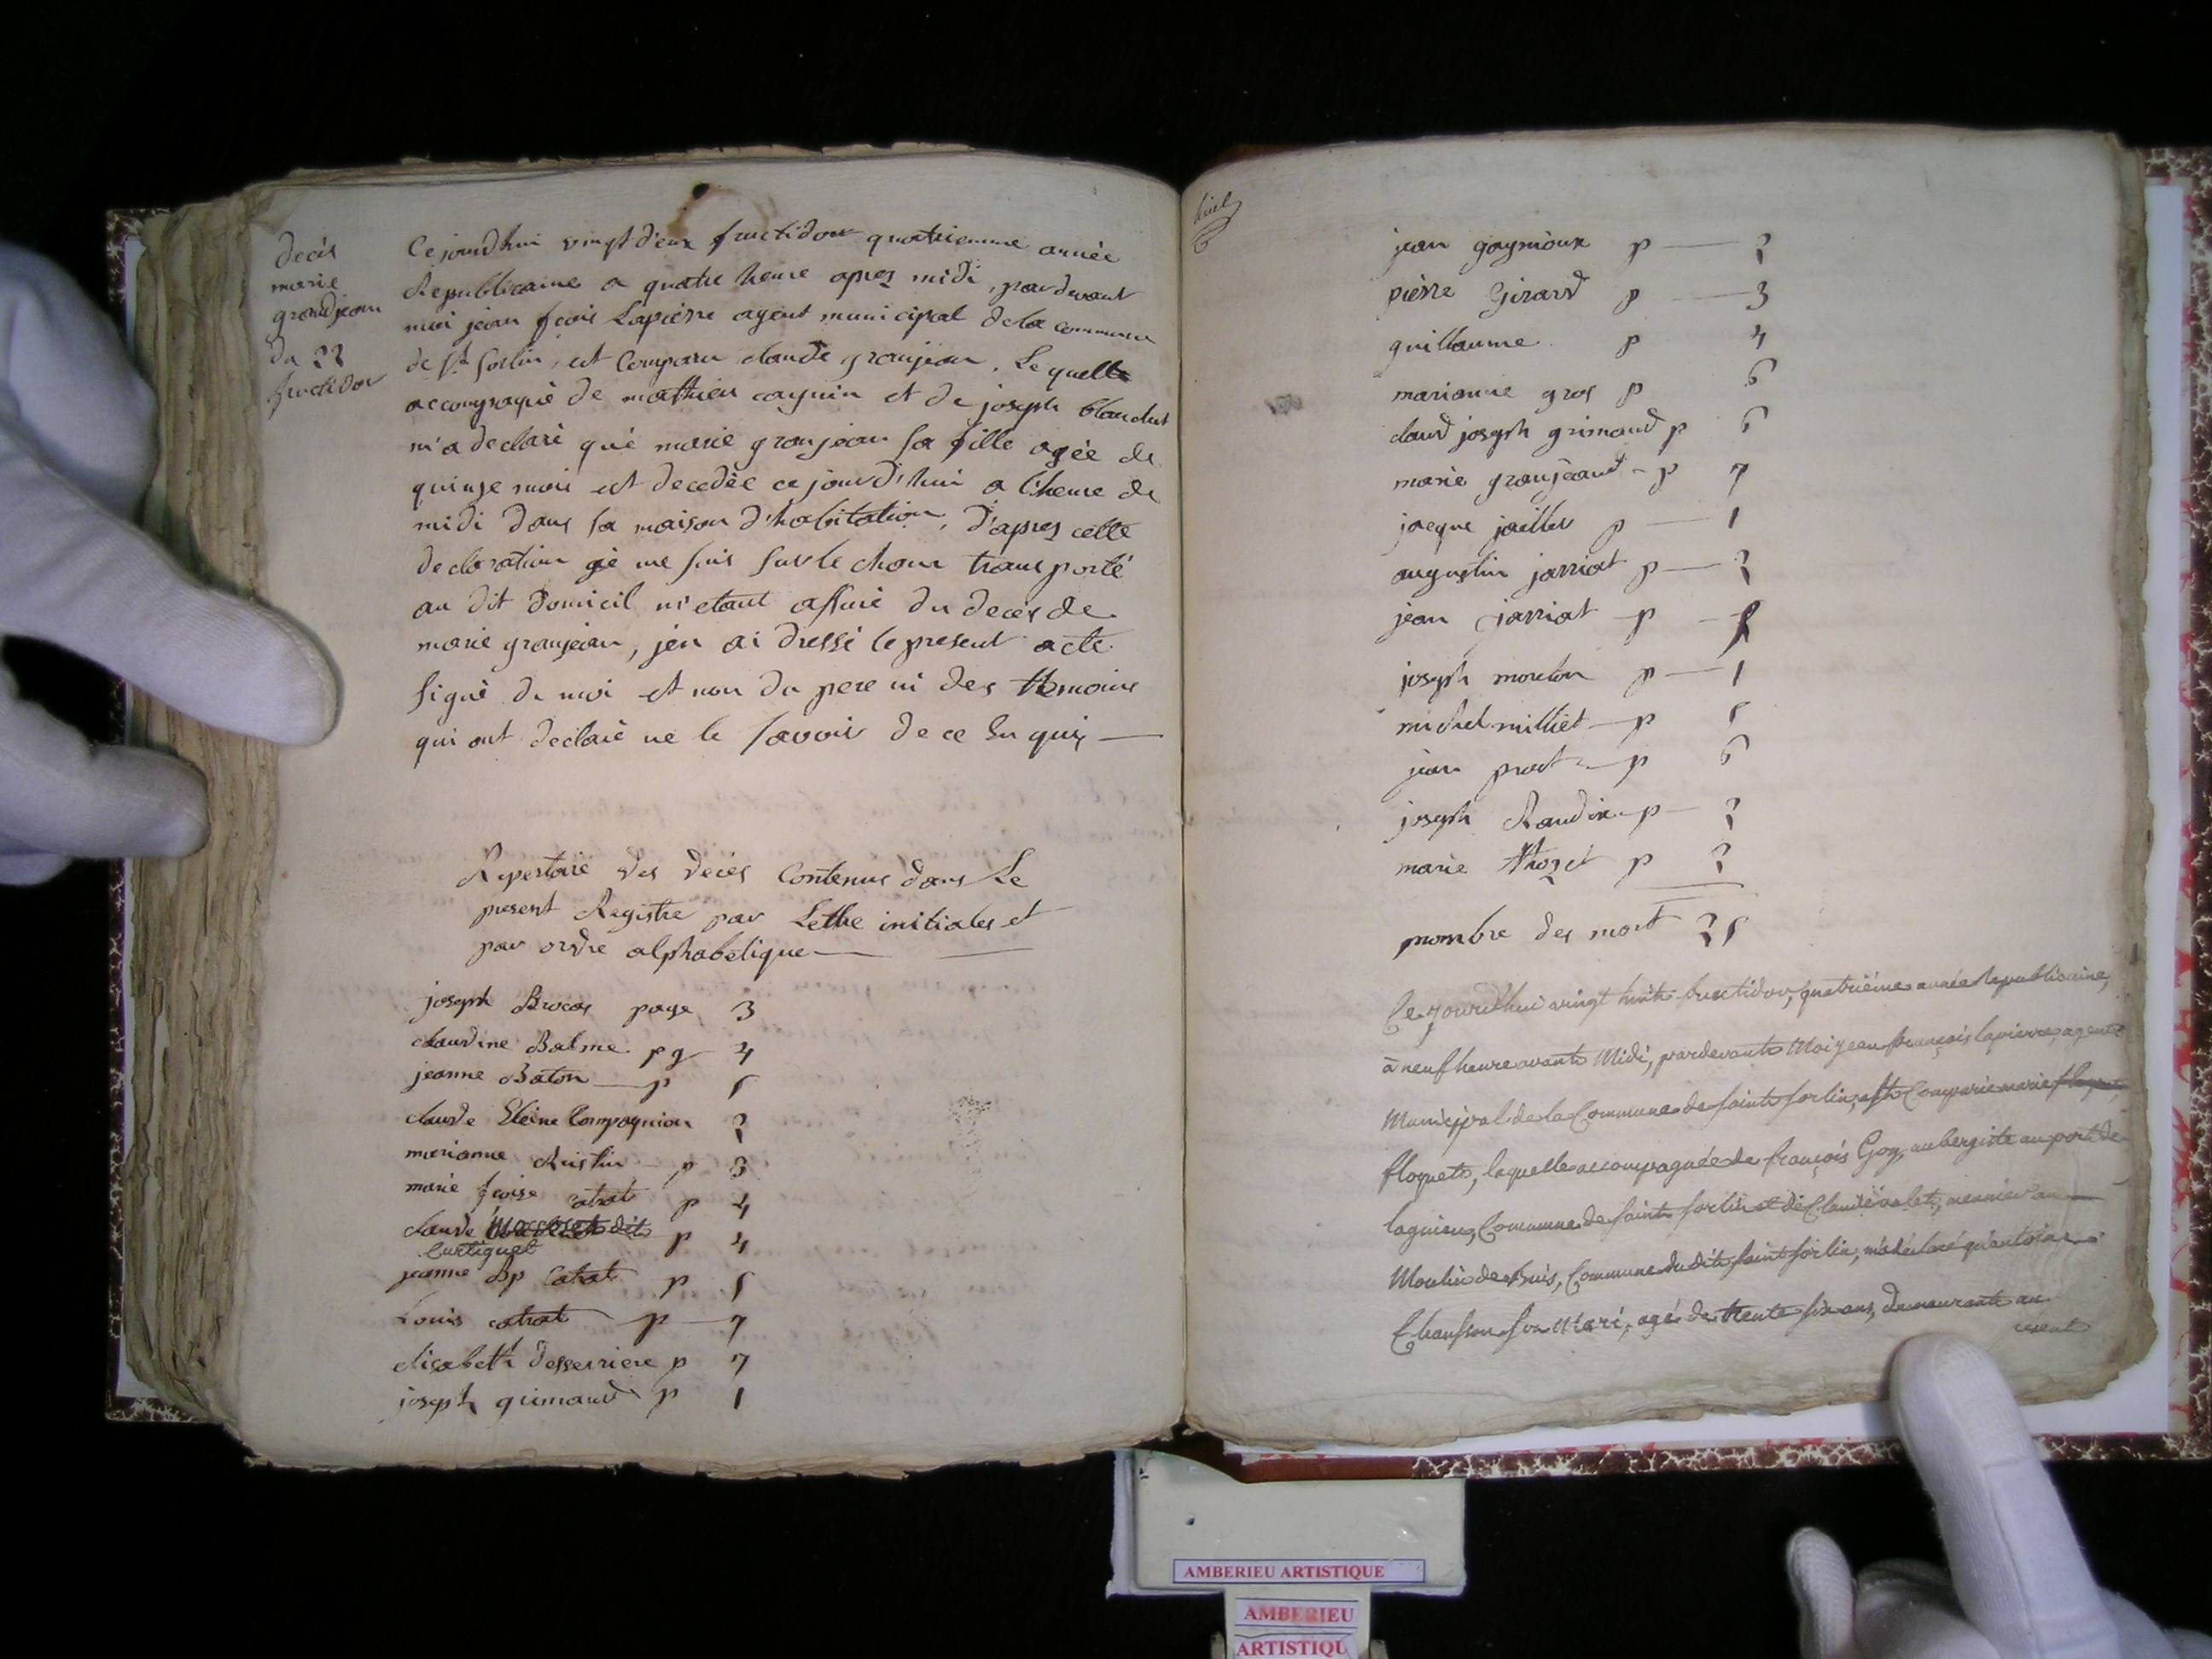 decés
marie
grandjean
du 22
fructidor
Ce jourdhui vingt d'eux fructidor quatriemme année
Republicaine a quatre heure apres midi, pardevant
moi jean fcois Lapierre agent municipal dela commune
de St Sorlin, est Comparu claude granjean, Le quelle
accompagné de mathieu caynin et de joseph blanchet
m'a declaré qué marie granjean sa fille agée de
quinze mois est decedée ce jourd'hui a l'heure de
midi dans sa maison d'habitation, d'apres cette
declaration gé me suis sur le cham transporté
au dit domicil m'etant assuré du decés de
marie granjean, jen ai dressé le present acte
signé de moi et non du pere ni des temoins
qui ont declaré ne le savoir de ce Enquis
Repertoire des decés Contenus dans Le
present Registre par Lettre initiales et
par ordre alphabetique
joseph Brocas page 3
claudine Balme pg 4
jeanne Baton p 5
claude Compagnion 2
marianne p 3
marie fcoise Catrat p 4
claude p 4
Curtiquet
jeanne Bp Catrat p 5
Louis catrat p 7
elisabeth desserriere p 7
joseph guimaud p 1
jean goynioux p 2
piérre Girard p 3
guillaume p 4
marianne gros p 6
claud joseph grimaud p 6
marie granjéand p 7
jacque jailler p 1
augustin jarriat p 2
jean jarriat p
joseph mouton p 1
michel milliet p 5
jean prat p 6
joseph Raudin p 2
marie thozet p 2
nombre des mort 25
Ce jourd'hui vingt huit fructidor, quatriéme année Republicaine,
à neuf heure avant Midi, pardevant Moi jean françois lapierre, agent
Municipal de la Commune de saint sorlin, est Comparue marie
floquet, laquelle accompagnée de françois Goy, aubergiste au port de
lagnieu, Commune de saint sorlin et de Claude valet, meunier au
Moulin de buis, Commune du dit saint sorlin, m'a déclaré qu'antoine
Chausson son Mari, agé de trente six ans, demeurant au